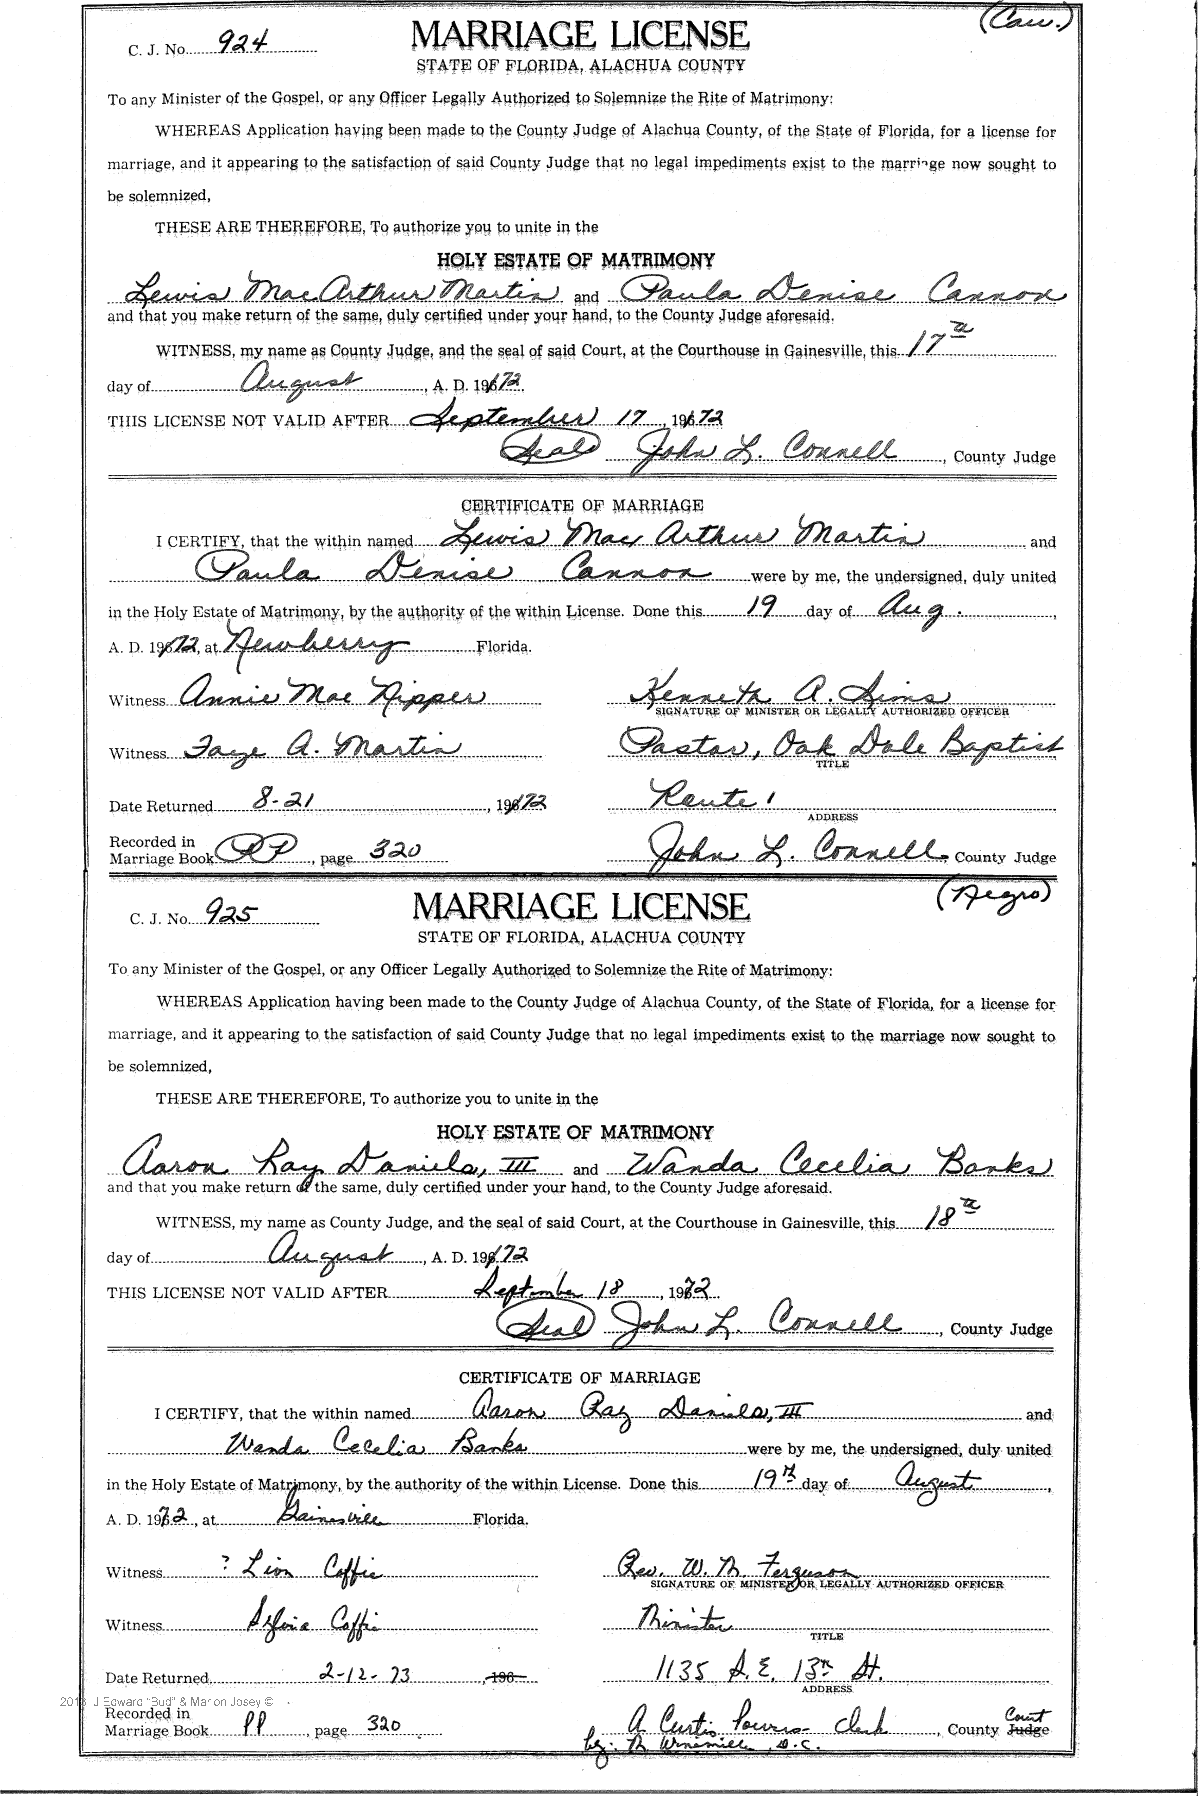 (Cau.)
C. J. No. 924
MARRIAGE LICENSE
STATE OF FLORIDA, ALACHUA COUNTY
To any Minister of the Gospel, or any Officer Legally Authorized to Solemnize the Rite of Matrimony:
WHEREAS Application having been made to the County Judge of Alachua County, of the State of Florida, for a license for
marriage, and it appearing to the satisfaction of said County Judge that no legal impediments exist to the marriage now sought to
be solemnized,
THESE ARE THEREFORE, To authorize you to unite in the
HOLY ESTATE OF MATRIMONY
Lewis MacArthur Martin and Paula Denise Cannon
and that you make return of the same, duly certified under your hand, to the County Judge aforesaid.
WITNESS, my name as County Judge, and the seal of said Court, at the Courthouse in Gainesville, this 17th
day of August, A. D. 1972
THIS LICENSE NOT VALID AFTER September 17, 1972
(Seal) John L. Connell, County Judge
CERTIFICATE OF MARRIAGE
I CERTIFY, that the within named Lewis Mac Arthur Martin and
Paula Denise Cannon were by me, the undersigned, duly united
in the Holy Estate of Matrimony, by the authority of the within License. Done this 19 day of Aug.,
A. D. 1972, at Newberry Florida.
Witness Annie Mae Nipper Kenneth A. Sims
SIGNATURE OF MINISTER OR LEGALLY AUTHORIZED OFFICER
Witness Faye A. Martin Pastor, Oak Dale Baptist
TITLE
Date Returned 8-21, 1972 Route 1
ADDRESS
Recorded in
Marriage Book PP, page 320 John L. Connell County Judge
(Negro)
C. J. No. 925
MARRIAGE LICENSE
STATE OF FLORIDA, ALACHUA COUNTY
To any Minister of the Gospel, or any Officer Legally Authorized to Solemnize the Rite of Matrimony:
WHEREAS Application having been made to the County Judge of Alachua County, of the State of Florida, for a license for
marriage, and it appearing to the satisfaction of said County Judge that no legal impediments exist to the marriage now sought to
be solemnized,
THESE ARE THEREFORE, To authorize you to unite in the
HOLY ESTATE OF MATRIMONY
Aaron Ray Daniels, III and Wanda Cecelia Banks
and that you make return of the same, duly certified under your hand, to the County Judge aforesaid.
WITNESS, my name as County Judge, and the seal of said Court, at the Courthouse in Gainesville, this 18th
day of August, A. D. 1972
THIS LICENSE NOT VALID AFTER September 18, 1972
(Seal) John L. Connell, County Judge
CERTIFICATE OF MARRIAGE
I CERTIFY, that the within named Aaron Ray Daniels, III and
Wanda Cecelia Banks were by me, the undersigned, duly united
in the Holy Estate of Matrimony, by the authority of the within License. Done this 19th day of August,
A. D. 1972, at Gainesville Florida.
Witness ? Lion Coffie Rev. W. M. Ferguson
SIGNATURE OF MINISTER OR LEGALLY AUTHORIZED OFFICER
Witness Coffie Minister
TITLE
Date Returned 2-12-73, 196 1135 S.E. 13th St.
ADDRESS
J Edward "Bud" & Marion Josey ©
Recorded in
Marriage Book PP, page 320 A Curtis Powers Clerk, County Judge Court
by: M D.C.